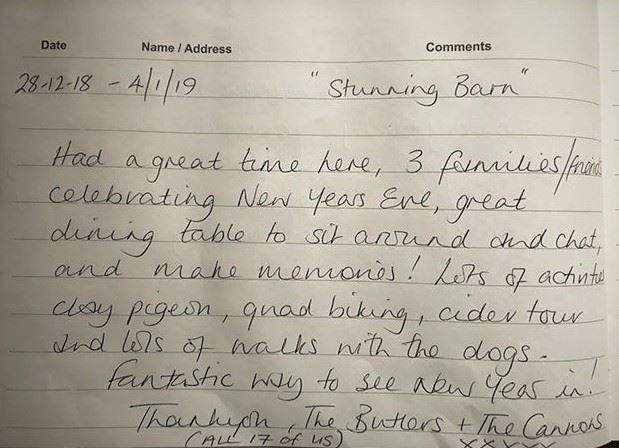 Date Name / Address Comments
28-12-18 - 4/1/19 "Stunning Barn"
Had a great time here, 3 families/friends
celebrating New Years Eve, great
dining table to sit around and chat,
and make memories! Lots of activities
clay pigeon, quad biking, cider tour
and lots of walks with the dogs.
Fantastic way to see New Year in!
Thankyou, The Butlers + The Cannons
(ALL 17 of us) XXXX